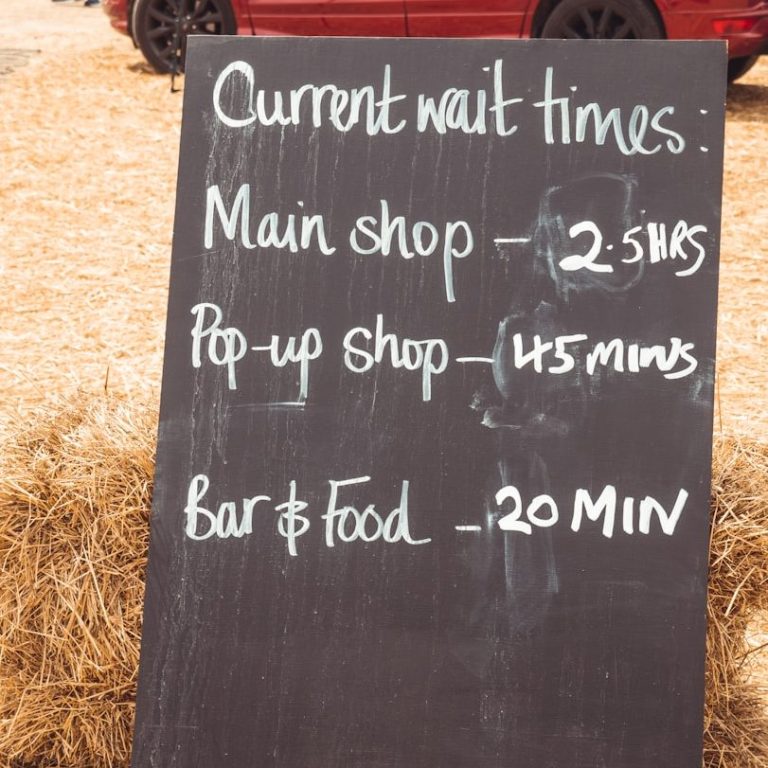 Current wait times:
Main shop - 2.5 HRS
Pop-up shop - 45 MINS
Bar & Food - 20 MIN